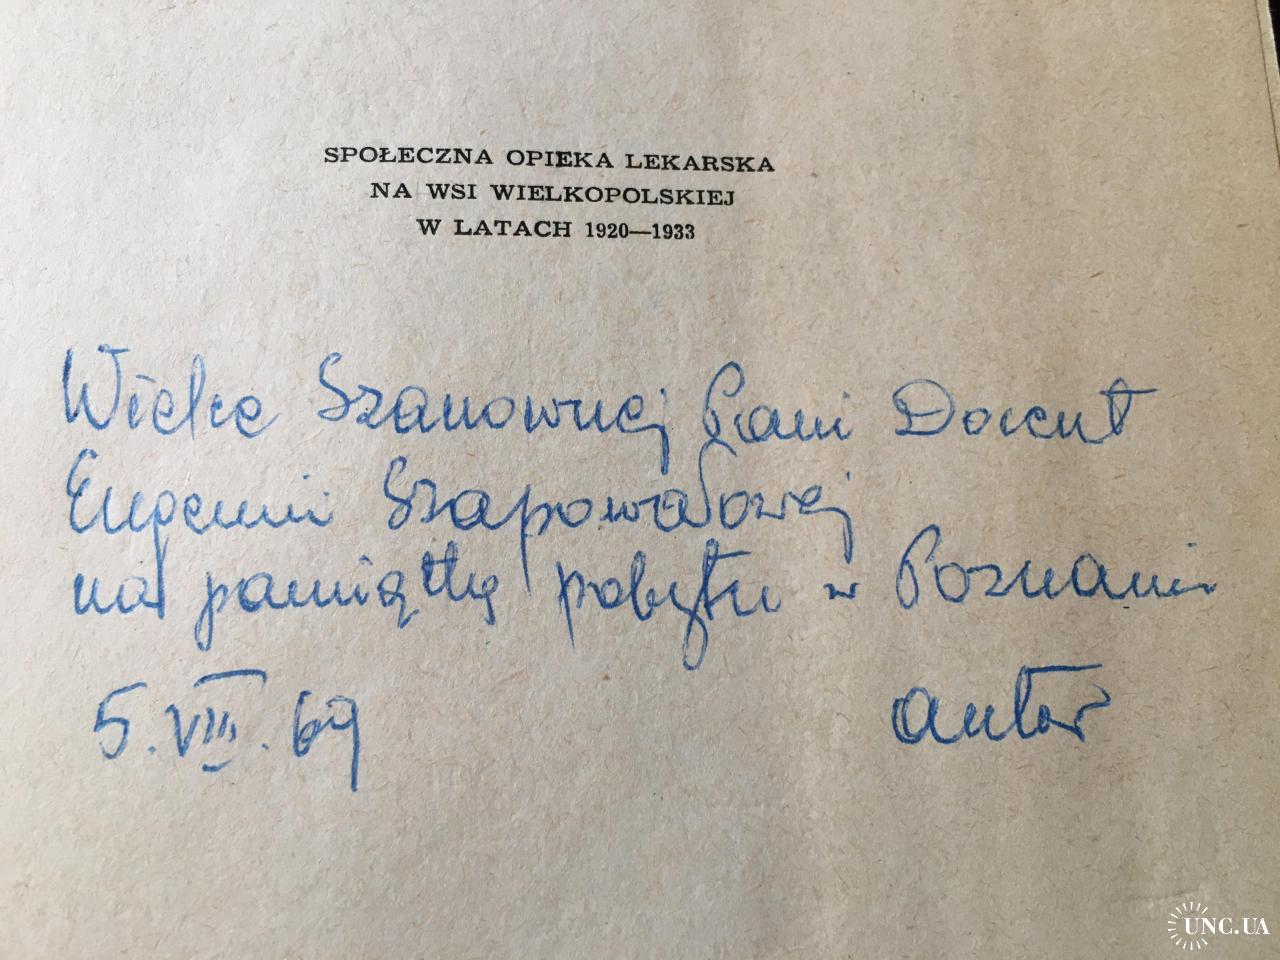 SPOŁECZNA OPIEKA LEKARSKA
NA WSI WIELKOPOLSKIEJ
W LATACH 1920—1933
Wielce Szanownej Pani Docent
Eugenii Szapowałowej
na pamiątkę pobytu w Poznaniu
5.VIII.69
autor
UNC.UA